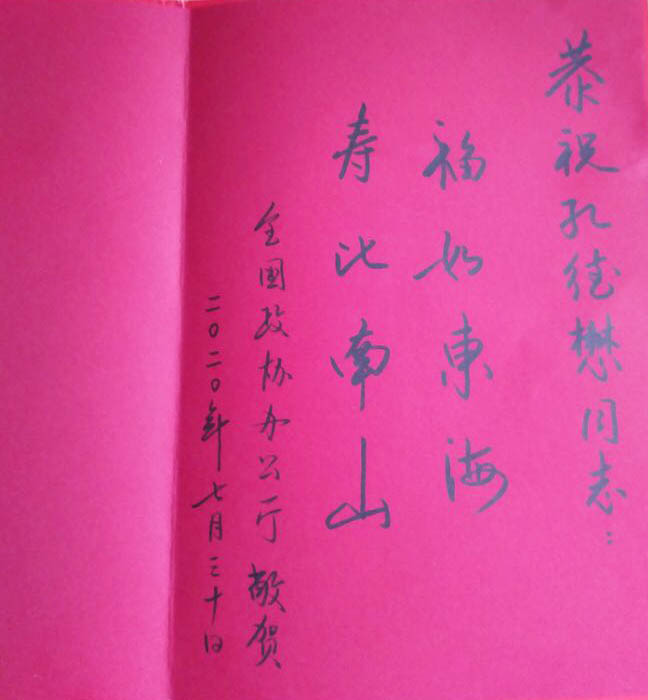 恭祝孔德懋同志：
福如東海
寿比南山
全国政协办公厅 敬贺
二〇二〇年七月三十日